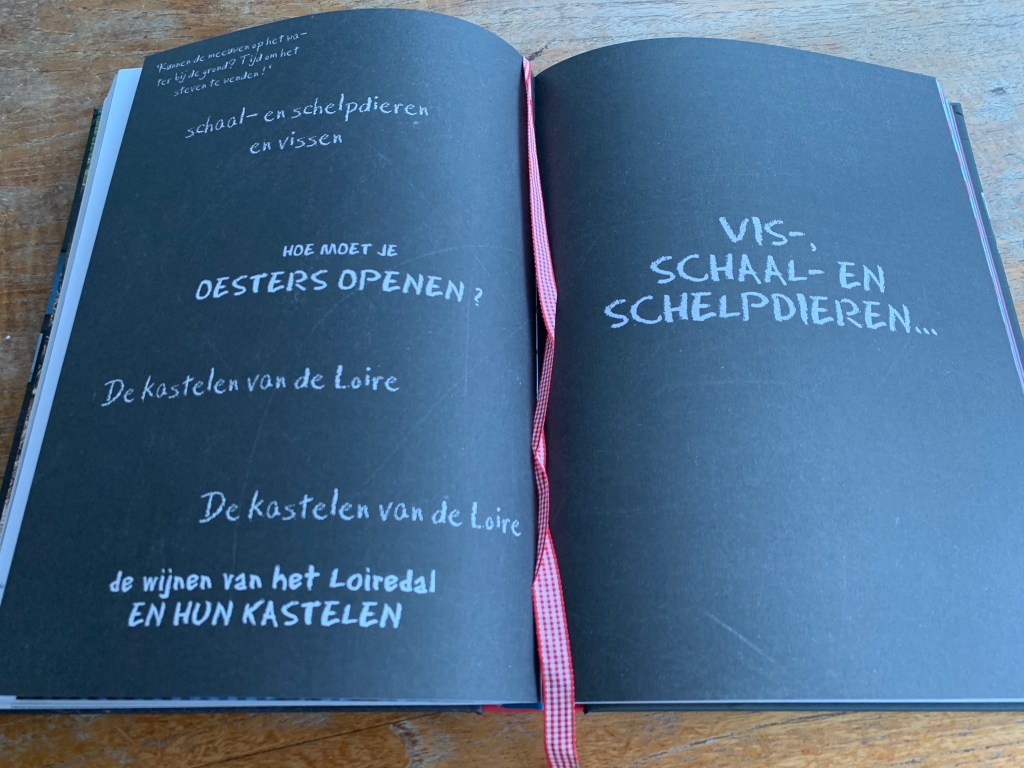 'Kunnen de meeuwen op het wa-
ter bij de grond? Tijd om het
steven te wenden!'
schaal- en schelpdieren
en vissen
HOE MOET JE
OESTERS OPENEN ?
De kastelen van de Loire
De kastelen van de Loire
de wijnen van het Loiredal
EN HUN KASTELEN
VIS-,
SCHAAL- EN
SCHELPDIEREN...